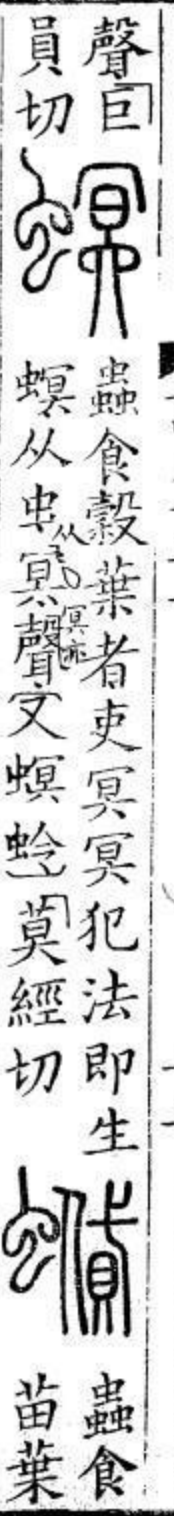 聲巨
員切
螟
蟲食穀葉者吏冥冥犯法即生
螟从虫冥聲又螟蛉莫經切
从冥亦
蟘
蟲食
苗葉